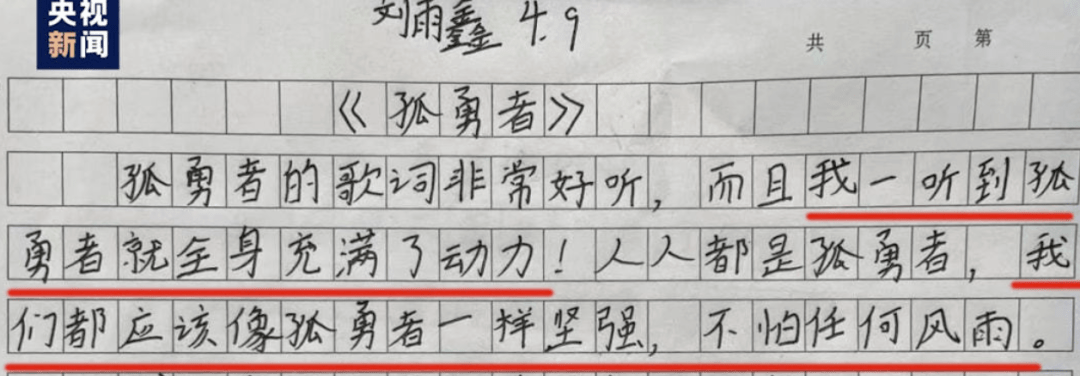 央视
新闻
刘雨鑫 4.9
共 页 第
《孤勇者》
孤勇者的歌词非常好听，而且我一听到孤
勇者就全身充满了动力！人人都是孤勇者，我
们都应该像孤勇者一样坚强，不怕任何风雨。